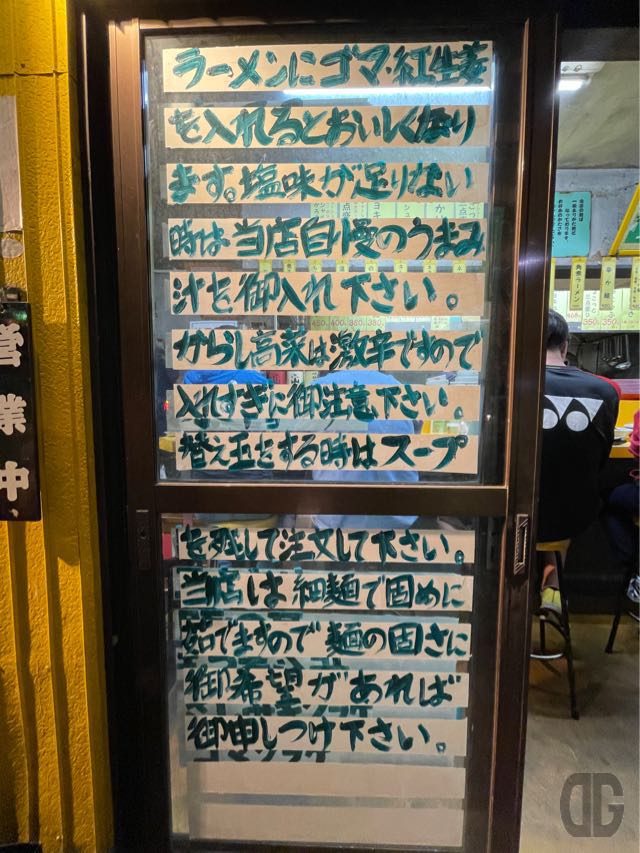 ラーメンにゴマ・紅生姜
を入れるとおいしくなり
ます。塩味が足りない
時は当店自慢のうまみ
汁を御入れ下さい。
からし高菜は激辛ですので
入れすぎに御注意下さい。
替え玉をする時はスープ
を残して注文して下さい。
当店は細麺で固めに
茹でますので麺の固さに
御希望があれば
御申しつけ下さい。
営業中
角煮ラーメン
DG